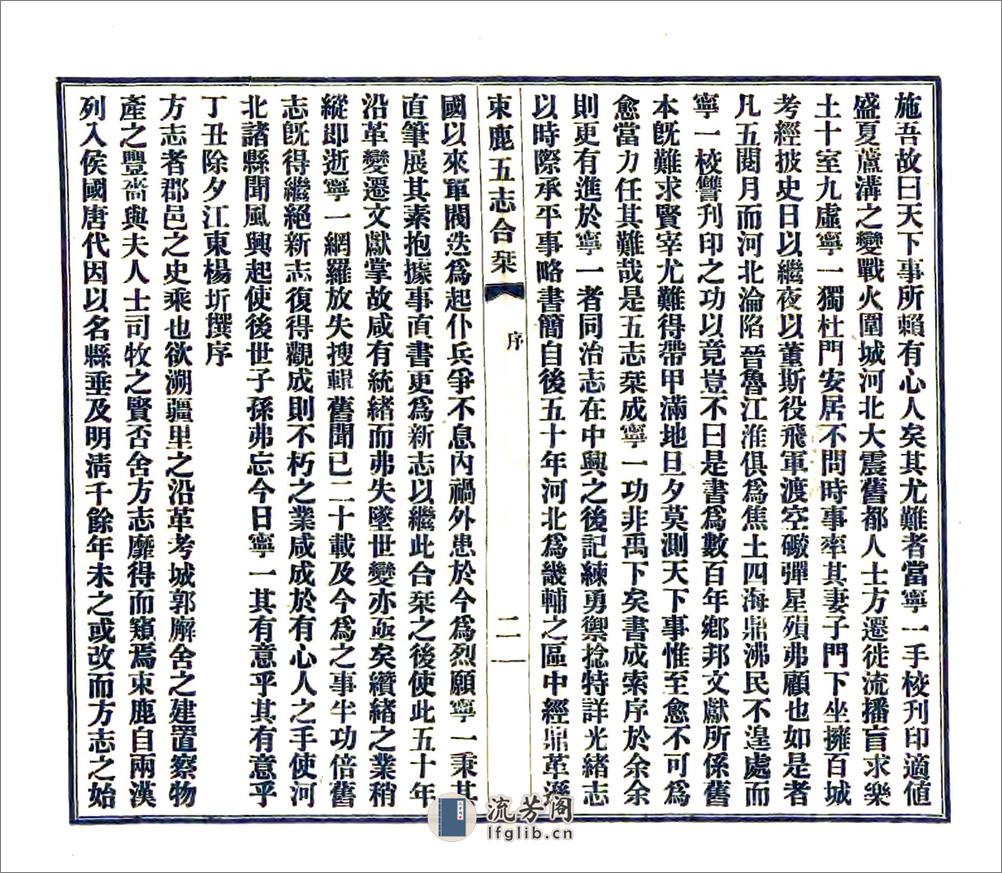 施吾故曰天下事所賴有心人矣其尤難者當寧一手校刊印適値
盛夏蘆溝之變戰火圍城河北大震舊都人士方遷徙流播盲求樂
土十室九虛寧一獨杜門安居不問時事率其妻子門下坐擁百城
考經披史日以繼夜以董斯役飛軍渡空礮彈星殞弗顧也如是者
凡五閱月而河北淪陷晉魯江淮俱爲焦土四海鼎沸民不遑處而
寧一校讐刊印之功以竟豈不曰是書爲數百年鄉邦文獻所係舊
本旣難求賢宰尤難得帶甲滿地旦夕莫測天下事惟至愈不可爲
愈當力任其難哉是五志栞成寧一功非禹下矣書成索序於余余
則更有進於寧一者同治志在中興之後記練勇禦捻特詳光緖志
以時際承平事略書簡自後五十年河北爲畿輔之區中經鼎革遜
束鹿五志合栞
序
二
國以來軍閥迭爲起仆兵爭不息內禍外患於今爲烈願寧一秉其
直筆展其素抱據事直書更爲新志以繼此合栞之後使此五十年
沿革變遷文獻掌故咸有統緖而弗失墜世變亦亟矣纘緖之業稍
縱即逝寧一網羅放失搜輯舊聞已二十載及今爲之事半功倍舊
志旣得繼絕新志復得觀成則不朽之業咸成於有心人之手使河
北諸縣聞風興起使後世子孫弗忘今日寧一其有意乎其有意乎
丁丑除夕江東楊圻撰序
方志者郡邑之史乘也欲溯疆里之沿革考城郭廨舍之建置察物
產之豐嗇與夫人士司牧之賢否舍方志靡得而窺焉束鹿自兩漢
列入侯國唐代因以名縣垂及明淸千餘年未之或改而方志之始
流芳阁
lfglib.cn